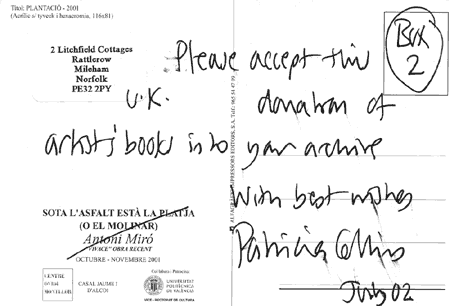 Títol: PLANTACIÓ - 2001
(Acrílic s/ tyveck i henacromia, 116x81)
2 Litchfield Cottages
Rattlerow
Mileham
Norfolk
PE32 2PY
U.K.
Box
2
Please accept this
donation of
artists' books into your archive
With best wishes
Patricia Collins
July 02
SOTA L'ASFALT ESTÀ LA PLATJA
(O EL MOLINAR)
Antoni Miró
"VIVACE" OBRA RECENT
OCTUBRE - NOVEMBRE 2001
CENTRE
CASAL JAUME I
D'ALCOI
UNIVERSITAT
POLITÈCNICA
DE VALÈNCIA